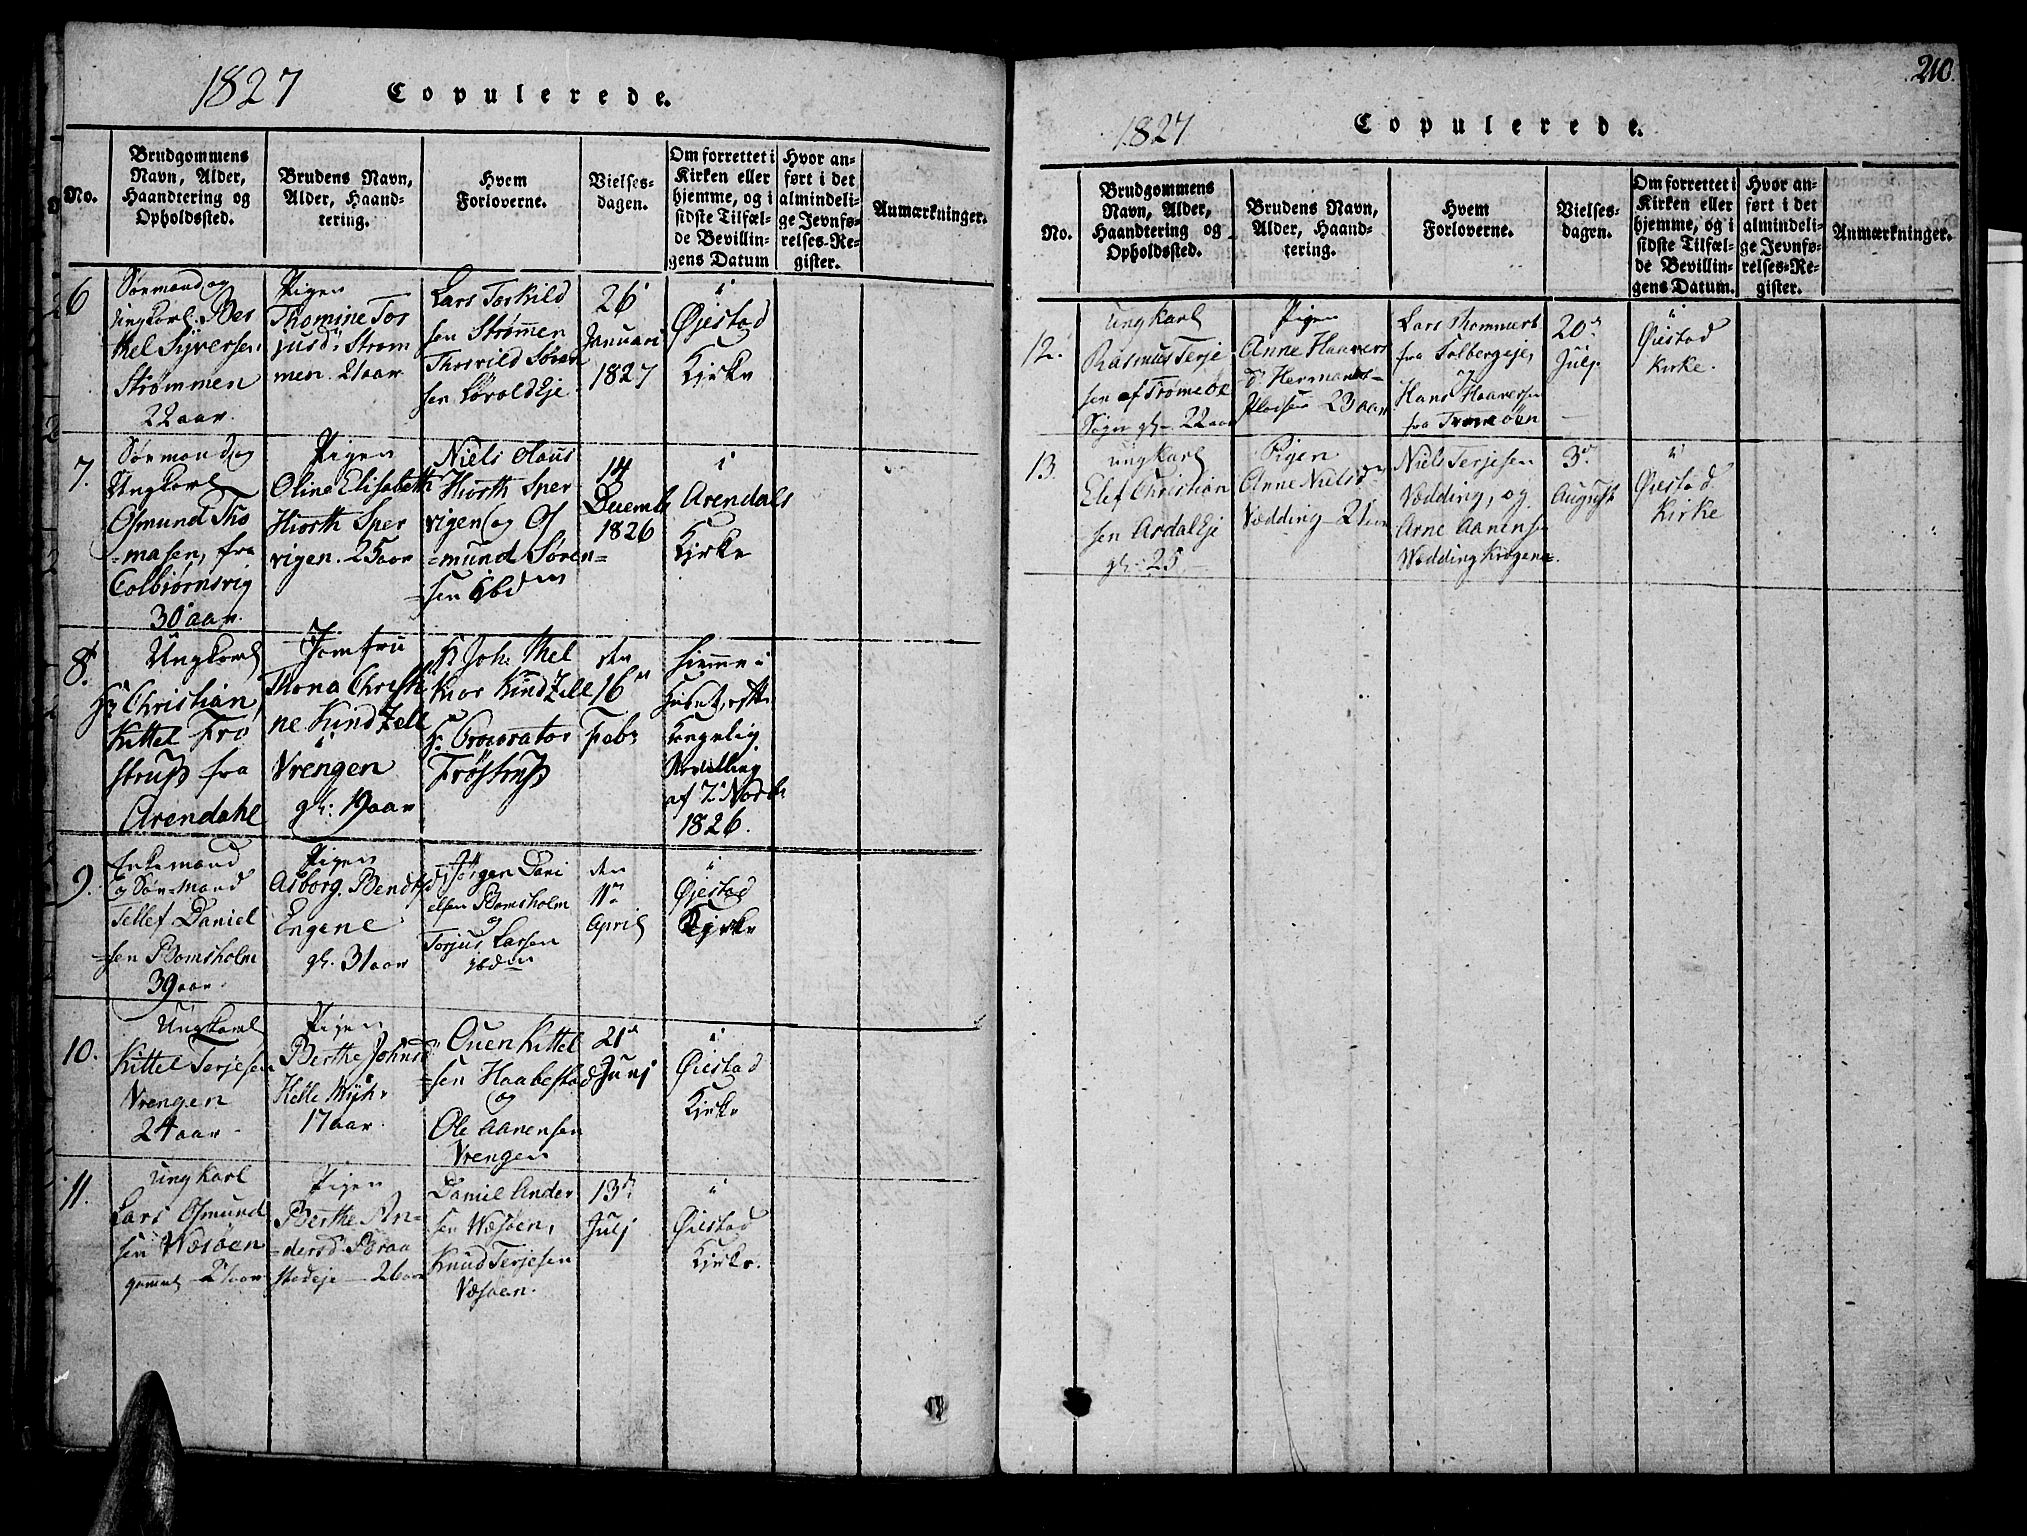 1827 Copulerede.
No.
Brudgommens
Navn, Alder,
Haandtering og
Opholdssted.
Brudens Navn,
Alder, Haand-
tering.
Hvem
Forloverne.
Vielses-
dagen.
Om forrettet i
Kirken eller
hjemme, og i
sidste Tilfæl-
de Bevillin-
gens Datum
Hvor an-
ført i det
almindeli-
ge Jevnfø-
relses-Re-
gister.
Anmærkninger.
6
Søemand og
Ungkarl
Syversen
Strømmen
22 aar.
Pigen
Thomine Tor
jusd. Strøm
men. 21 aar
Lars Torkild
sen Strømmen
Søren
sen
26
Januari
1827
Øiestad
Kirke
7.
Søemand og
Ungkarl
Osmund Tho
=masen, fra
Colbiørnsvig
30 aar.
Pigen
Oline Elisabeth
Hiorth Sper
vigen. 25 aar
Niels Olaus
Hiorth Sper
vigen og Os
=mund Søren=
sen ibdm
14
Decemb
1826
Arendals
Kirke
8.
Ungkarl
Hr Christian
Kittel Frø
strup fra
Arendahl
Jomfru
Thona Christi
ne Kindzell
Vrengen
gl: 19 aar
Hr Joh: Mel
kior Kindzell
Hr Procurator
Frøstrup
den
16de
Febr
hiemme i
Huset, efter
Kongelig
Bevilling
af 7. Novb.
1826.
9.
Enkemand
og Søemand
Tellef Daniel
=sen Bomsholm
39 aar
Pigen
Asborg Bendtsd
Engene
gl. 31 aar
Jørgen Dani
elsen Bomsholm
og
Torjus Larsen
ibdm
den
11te
April
Øiestad
Kirke
10.
Ungkarl
Kittel Terjesen
Vrengen
24 aar
Pigen
Berthe Johnsd
Helle Myhr
17 aar.
Ouen Kittel
=sen Haabestad
og
Ole Aanensen
Vrengen
21de
Junj
Øiestad
Kirke
11.
Ungkarl
Lars Osmund
sen Wæsøen
gammel 27 aar
Pigen
Berthe An=
=dersd. Braa
stadeje 26 aar
Daniel Ander
sen Wæsøen,
Knud Terjesen
Væsøen.
13de
Julj
Øiestad
Kirke.
210
1827 Copulerede.
No.
Brudgommens
Navn, Alder,
Haandtering og
Opholdssted.
Brudens Navn,
Alder, Haand-
tering.
Hvem
Forloverne.
Vielses-
dagen.
Om forrettet i
Kirken eller
hjemme, og i
sidste Tilfæl-
de Bevillin-
gens Datum.
Hvor an-
ført i det
almindeli-
ge Jevnfø-
relses-Re-
gister.
Anmærkninger.
12.
Ungkarl
Rasmus Terje
sen af Trømøe
Sogn gl. 22 aar
Pigen
Anne Haavers
d. Hermans=
23 aar
Lars
fra
Hans Haaversen
fra Tromøen
20de
Julj.
Øiestad
Kirke.
13.
Ungkarl
Elef Christian
sen Ardal Eje
gl. 25
Pigen
Anne Nielsd
Vædding 21 aar
Niels Terjesen
Vædding, og
Arne Aanensen
Wædding Krogene.
3de
August
Øiestad
Kirke